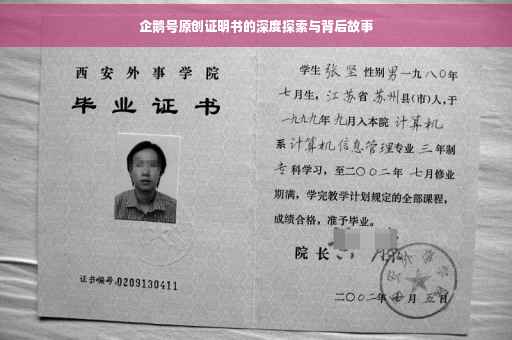 企鹅号原创证明书的深度探索与背后故事
西安外事学院
毕业证书
证书编号:0209130411
学生 张坚 性别 男 一九八〇年
七月生，江苏省 苏州县(市)人，于
一九九九年 九月入本院 计算机
系 计算机信息管理专业 三 年制
专科学习，至二〇〇二年 七月修业
期满，学完教学计划规定的全部课程，
成绩合格，准予毕业。
院长
二〇〇二年 七 月 五 日